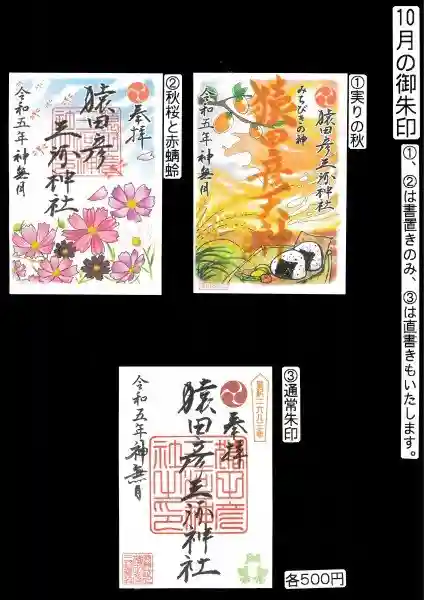 10月の御朱印
①、②は書置きのみ、③は直書きもいたします。
①実りの秋
奉拝
猿田彦三河神社
みちびきの神
猿田彦大神
令和五年神無月
②秋桜と赤蜻蛉
奉拝
猿田彦三河神社
令和五年神無月
③通常朱印
奉拝
猿田彦三河神社
令和五年神無月
各500円